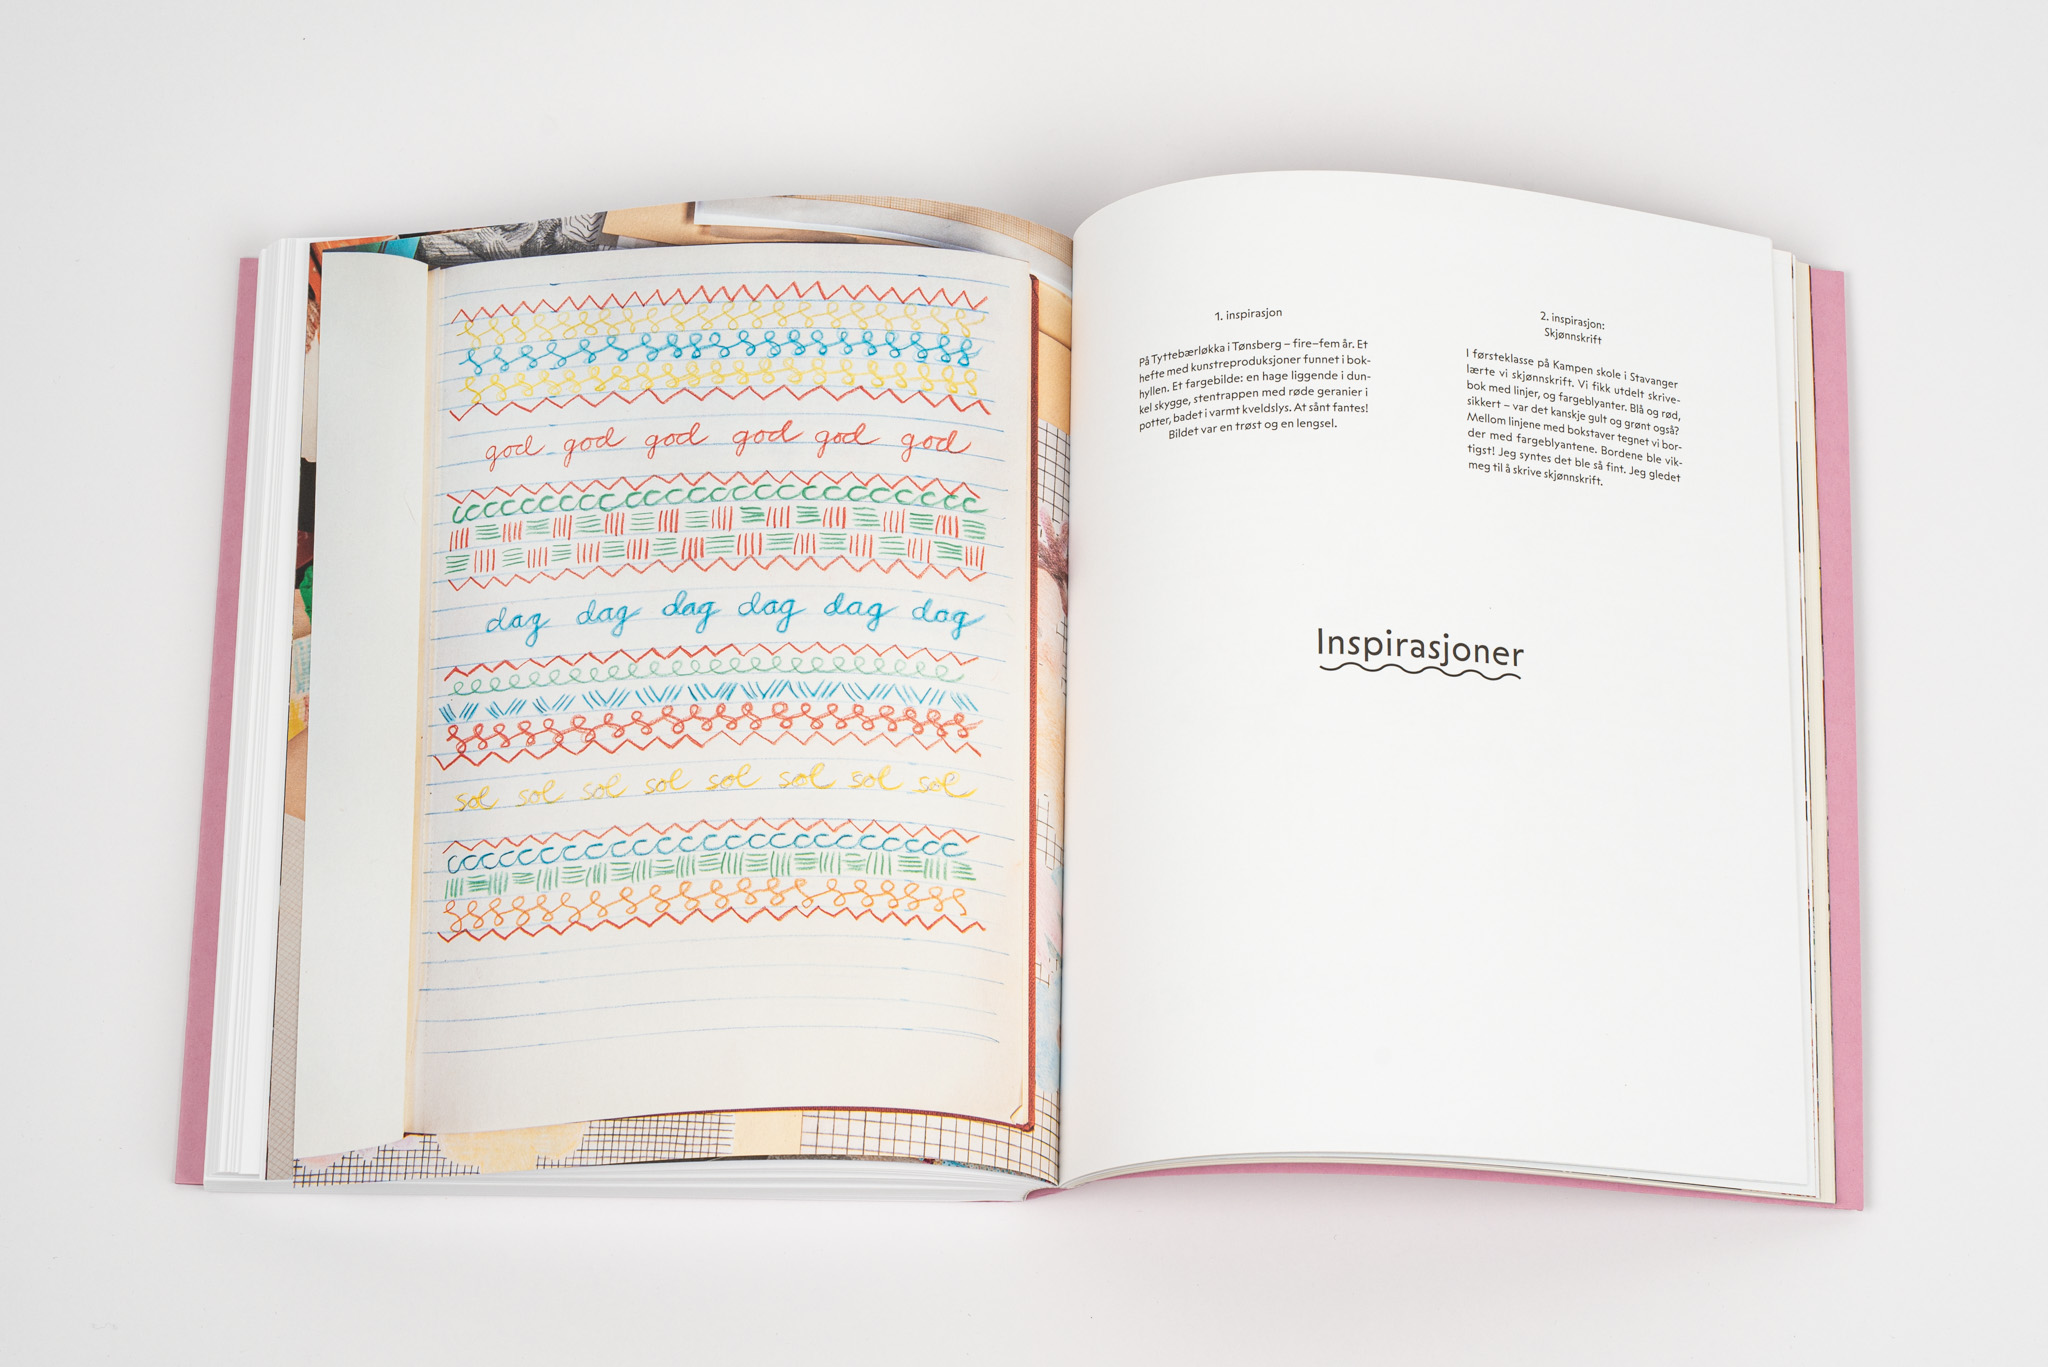 god god god god god god
dag dag dag dag dag dag
sol sol sol sol sol sol sol sol
1. inspirasjon
På Tyttebærløkka i Tønsberg – fire–fem år. Et
hefte med kunstreproduksjoner funnet i bok-
hyllen. Et fargebilde: en hage liggende i dun-
kel skygge, stentrappen med røde geranier i
potter, badet i varmt kveldslys. At sånt fantes!
Bildet var en trøst og en lengsel.
2. inspirasjon:
Skjønnskrift
I førsteklasse på Kampen skole i Stavanger
lærte vi skjønnskrift. Vi fikk utdelt skrive-
bok med linjer, og fargeblyanter. Blå og rød,
sikkert – var det kanskje gult og grønt også?
Mellom linjene med bokstaver tegnet vi bor-
der med fargeblyantene. Bordene ble vik-
tigst! Jeg syntes det ble så fint. Jeg gledet
meg til å skrive skjønnskrift.
Inspirasjoner